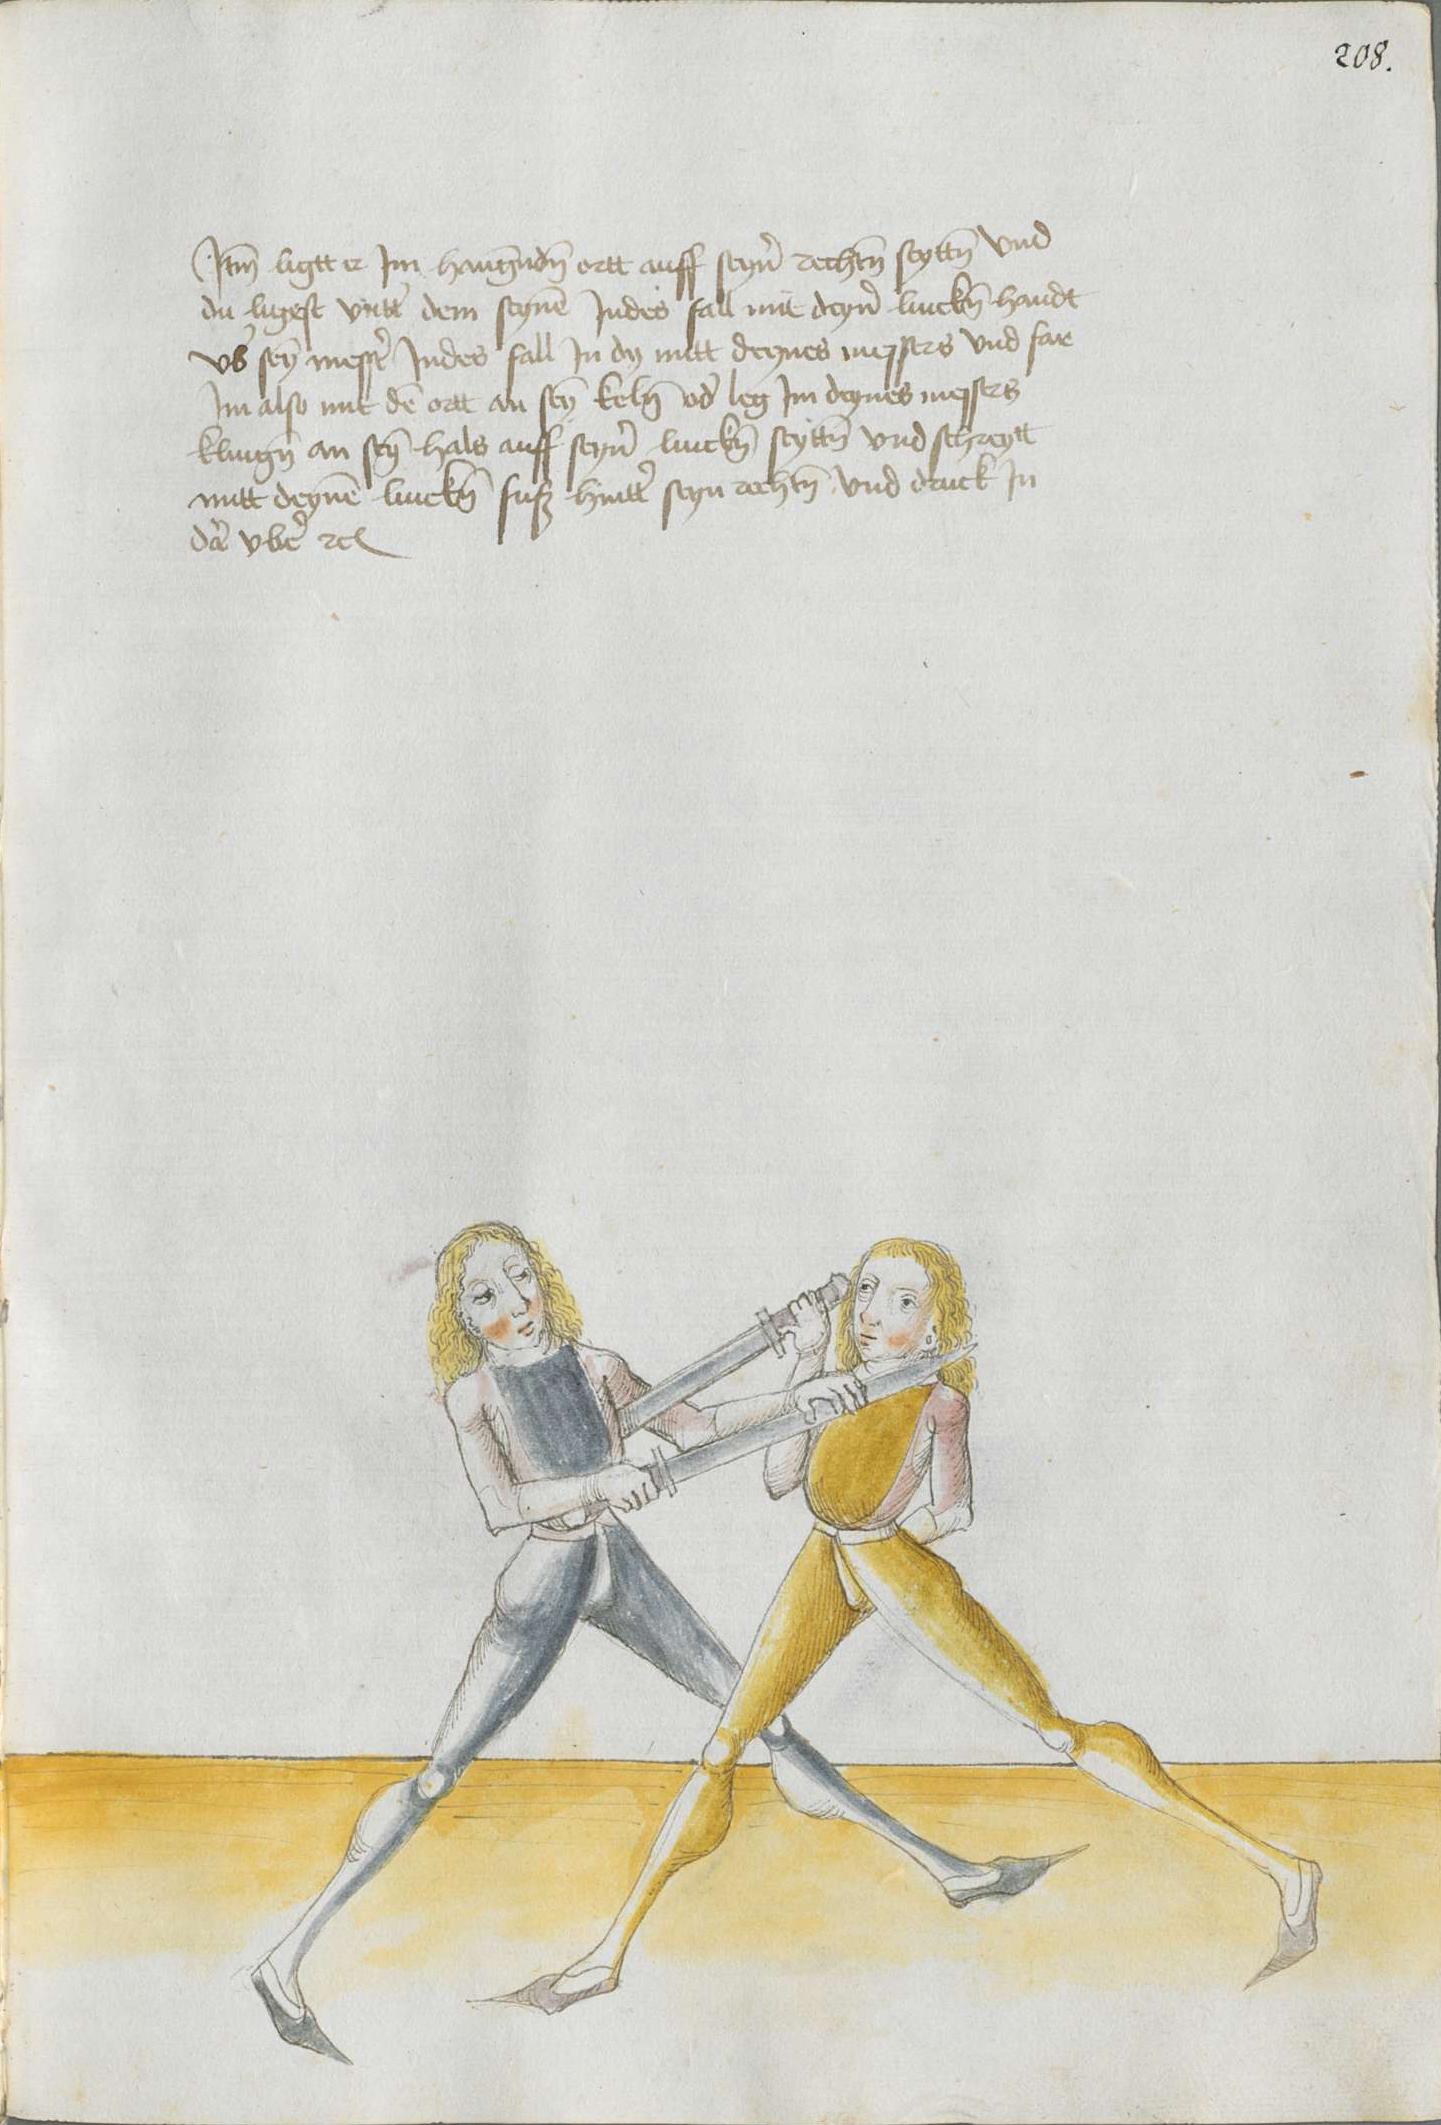 208.
Itm̄ ligtt er Jm hanngn̄dn̄ ortt auff seyn̄ rechtn̄ seyttn̄ vnd
du ligest vntt' dem seynē Jndes fall mit deyn̄ linckn̄ handt
vb' seȳ messr̄ Jndes fall Jn dy mitt deynes messers vnd far
Jm also mit dē ortt an seȳ keln̄ od' leg Jm deynes messers
klingn̄ an seȳ hals auff seyn̄ linckn̄ seyttn̄ vnd schreytt
mitt deynē linckn̄ fuß hintt' seyn rechtn̄ vnd druck Jn
dar̄ vbe' rc